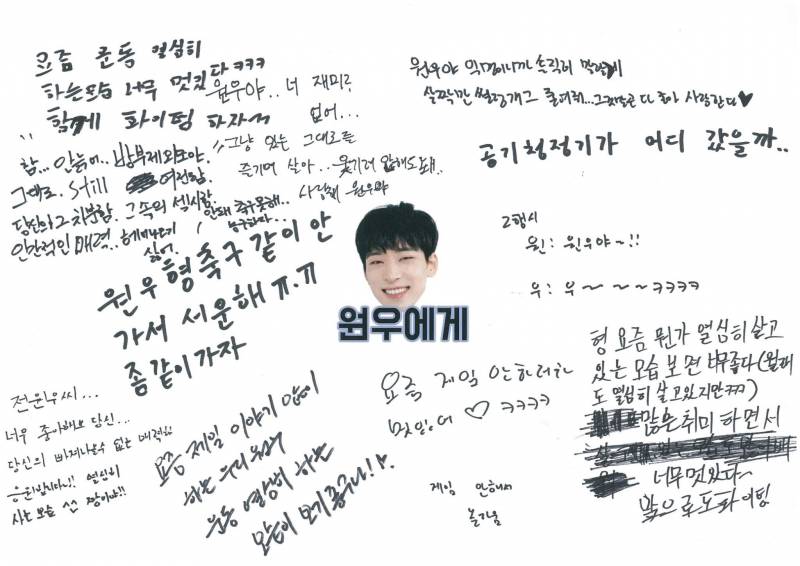 요즘 운동 열심히
하는모습 너무 멋있다ㅋㅋㅋ
함께 화이팅 하자서
원우야.. 너 재미가
없어...
그냥 있는 그대로를
즐기며 살아... 웃기려 안해도돼..
사랑해 원우야
참... 안늙어.. 방부제 외모야.
그대로. Still 여전함.
당신의 그 차분함. 그 속의 섹시함.
인간적인 매력.. 헤매
싫어.
안돼 축구못해..
농구하자...
원우야 익명이니까 솔직히 말할게
살짝만 썰렁개그 줄여줘... 그치만 다 좋아 사랑한다♥
공기청정기가 어디 갔을까..
2행시
원: 원우야~!!
우: 우~~~~ㅋㅋㅋㅋ
원우형 축구 같이 안
가서 서운해 ㅠ.ㅠ
좀 같이가자
원우에게
형 요즘 뭔가 열심히 살고
있는 모습 보면 너무좋다 (원래
도 열심히 살고있지만ㅋㅋㅋ)
많은 취미 하면서
너무 멋있다~
앞으로도 화이팅
전원우씨...
너무 좋아해요 당신...
당신의 빠져나올수 없는 매력!!
응원합니다~! 열심히
사는 모습 짱이야!!
요즘 제일 이야기 많이
하는 우리 원우
운동 열심히 하는
모습이 보기 좋구나!
요즘 제일
멋있어 ♡ ㅋㅋㅋㅋ
게임